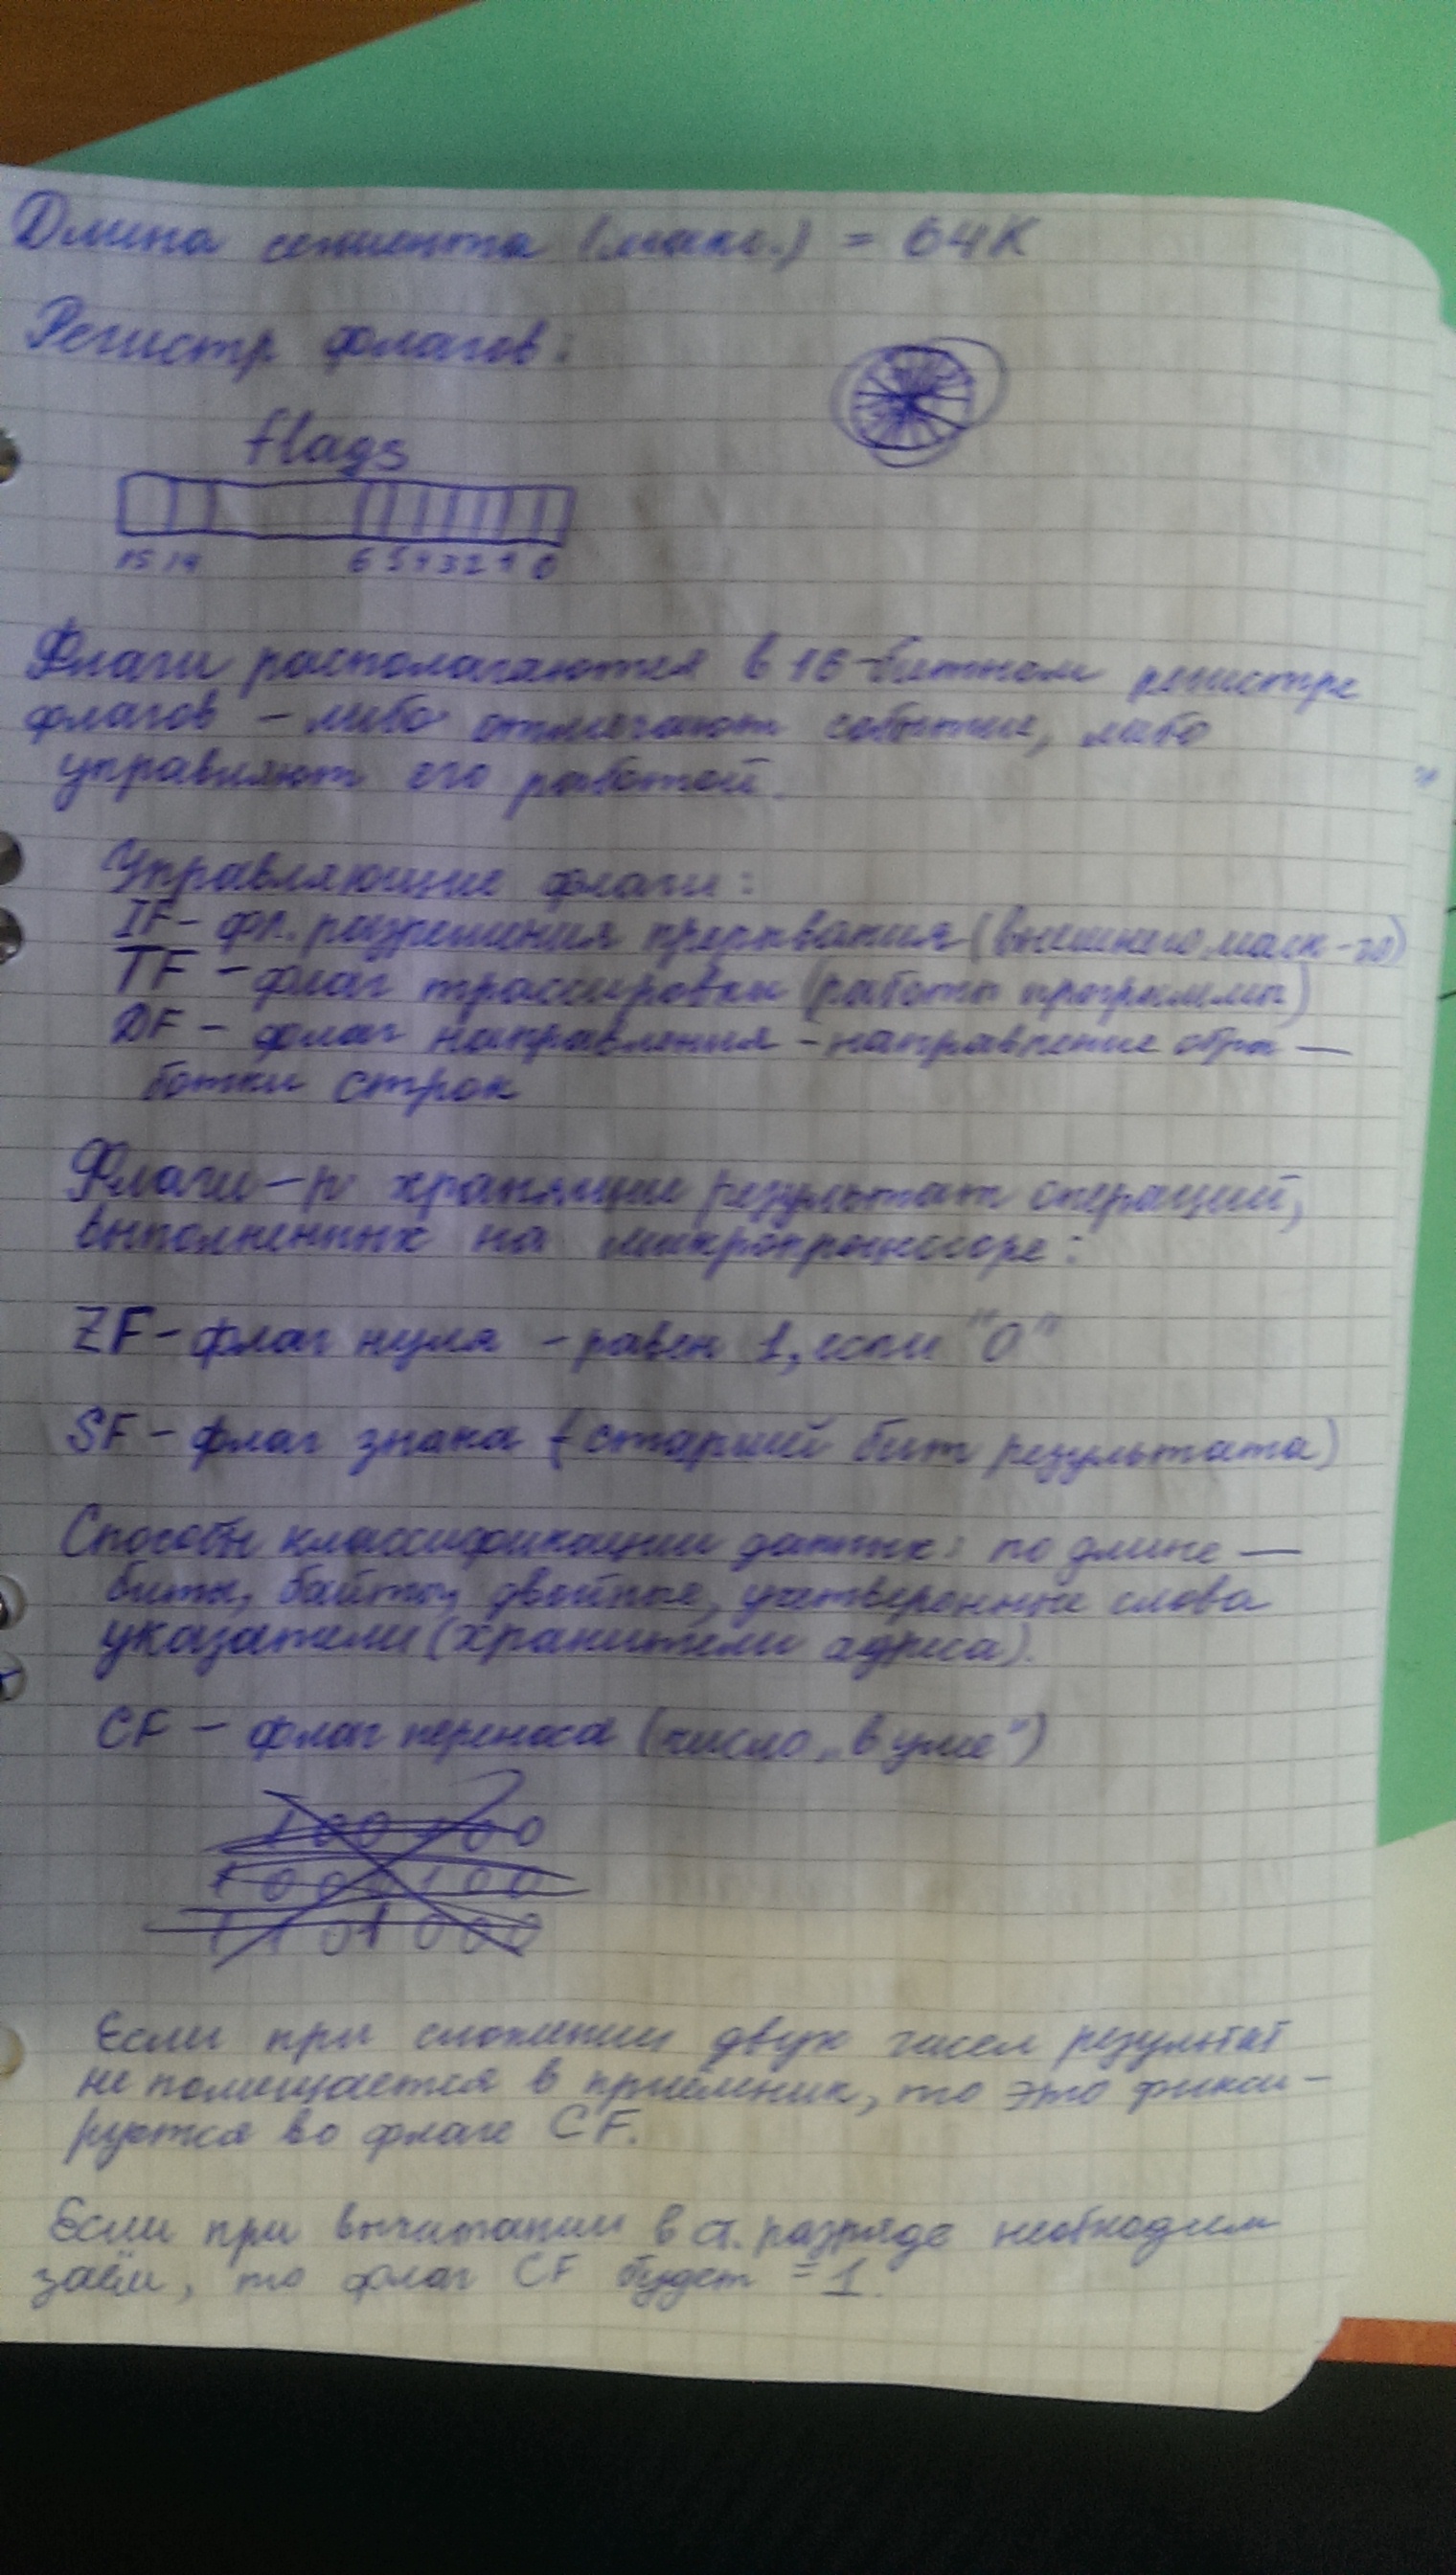 Длина сегмента (макс.) = 64К
Регистр флагов:
flags
15 14 6 5 4 3 2 1 0
Флаги располагаются в 16-битном регистре
флагов – либо отмечают событие, либо
управляют его работой.
Управляющие флаги:
IF – фл. разрешения прерывания (внешнего маск-го)
TF – флаг трассировки (работы программы)
DF – флаг направления – направление обра –
ботки строк
Флаги – хранящие результат операций,
выполненных на микропроцессоре:
ZF – флаг нуля – равен 1, если "0"
SF – флаг знака (старший бит результата)
Способы классификации данных: по длине –
биты, байты, двойные, учетверенные слова
указатели (хранители адреса).
CF – флаг переноса (число „в уме")
1 0 0 1 0 0
1 0 0 0 1 0 0
1 1 0 1 0 0 0
Если при сложении двух чисел результат
не помещается в приёмник, то это фикси –
руется во флаге CF.
Если при вычитании в ст. разряде необходим
заём, то флаг CF будет = 1.